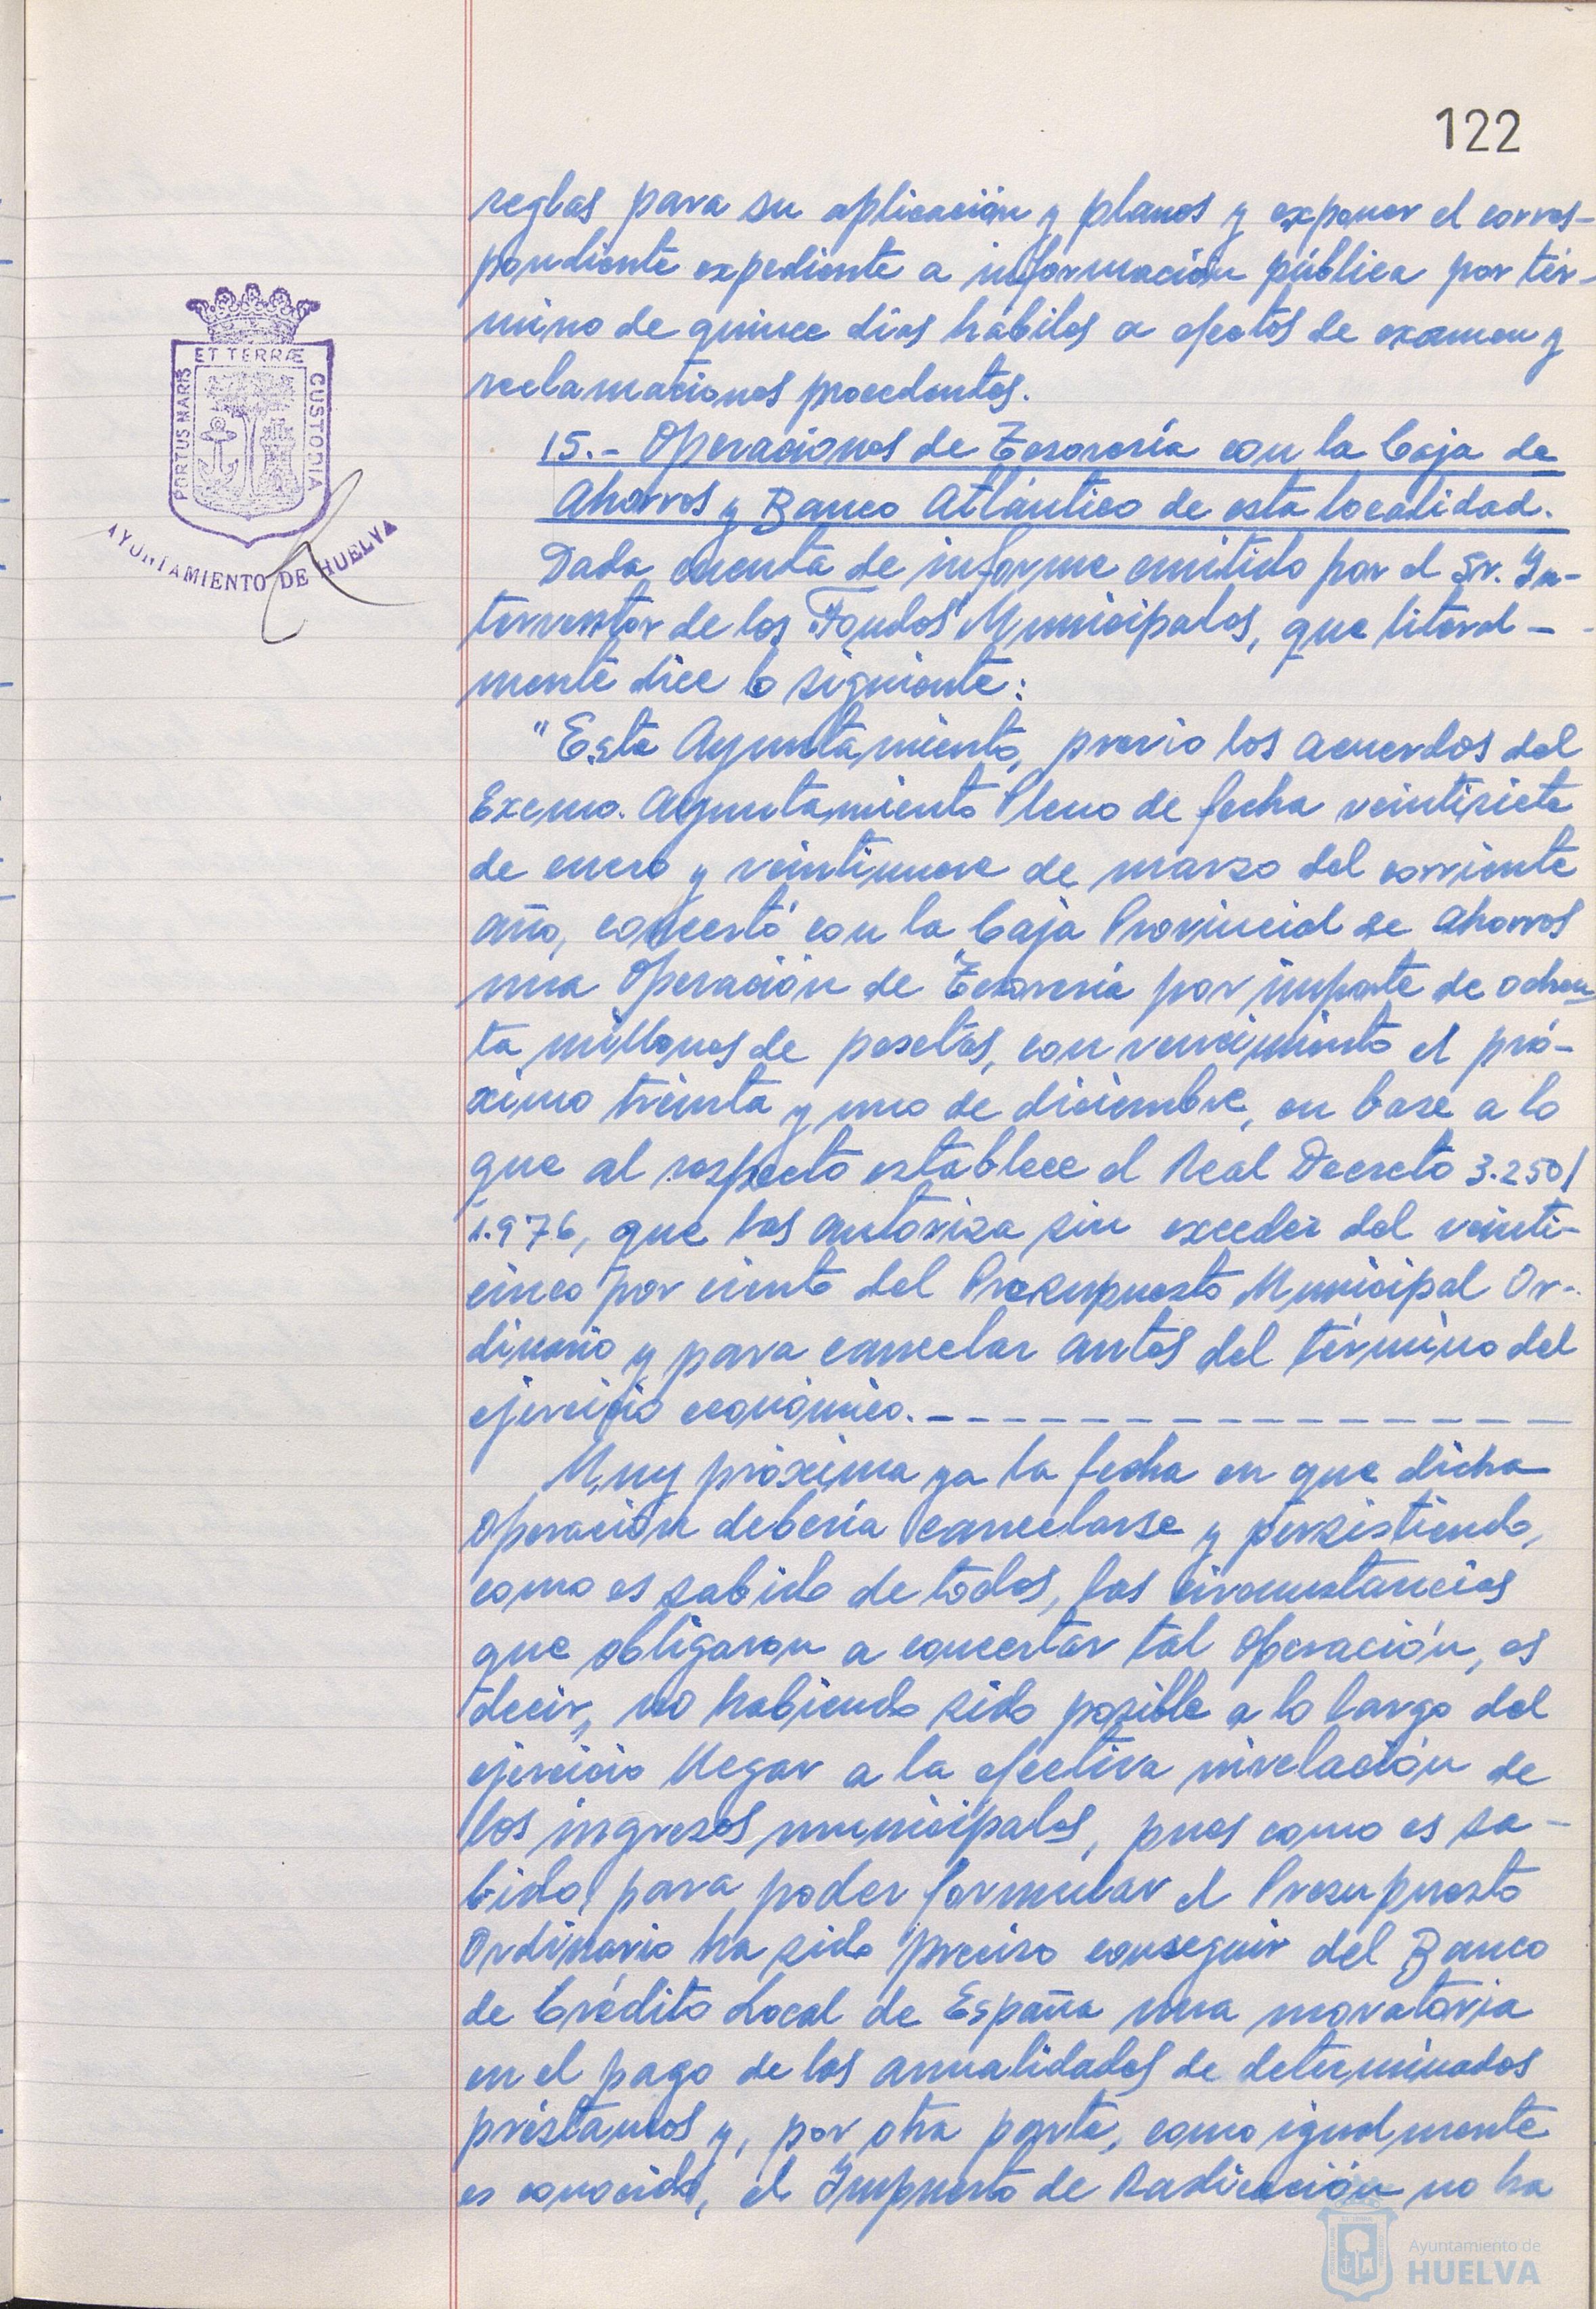 122
reglas para su aplicación y planos y exponer el corres-
pondiente expediente a información pública por tér-
mino de quince días hábiles a efectos de examen y
reclamaciones procedentes.
15.- Operaciones de Tesorería con la Caja de
Ahorros y Banco Atlántico de esta localidad.
Dada cuenta de informe emitido por el Sr. In-
terventor de los Fondos Municipales, que literal-
mente dice lo siguiente:
"Este Ayuntamiento, previo los acuerdos del
Excmo. Ayuntamiento Pleno de fecha veintisiete
de enero y veintinueve de marzo del corriente
año, concertó con la Caja Provincial de Ahorros
una Operación de Tesorería por importe de ochen
ta millones de pesetas, con vencimiento el pró-
ximo treinta y uno de diciembre, en base a lo
que al respecto establece el Real Decreto 3.250/
1.976, que las autoriza sin exceder del veinti-
cinco por ciento del Presupuesto Municipal Or-
dinario y para cancelar antes del término del
ejercicio económico.- - - - - - - - - - - - - - - - -
Muy próxima ya la fecha en que dicha
Operación debería cancelarse y persistiendo,
como es sabido de todos, las circunstancias
que obligaron a concertar tal Operación, es
decir, no habiendo sido posible a lo largo del
ejercicio llegar a la efectiva nivelación de
los ingresos municipales, pues como es sa-
bido, para poder formular el Presupuesto
Ordinario ha sido preciso conseguir del Banco
de Crédito Local de España una moratoria
en el pago de las anualidades de determinados
préstamos y, por otra parte, como igualmente
es conocido, el Impuesto de Radicación no ha
PORTUS MARIS
ET TERRÆ
CUSTODIA
AYUNTAMIENTO DE HUELVA
Ayuntamiento de
HUELVA